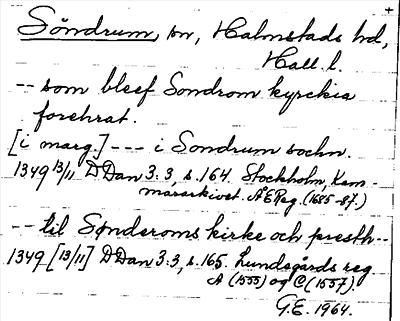 Söndrum, sn, Halmstads hd,
Hall. l.
-- som bleef Sondrom kyrckia
forehrat.
[i marg.] --- i Sondrum sochn.
1349 13/11 DDan 3:3, s. 164. Stockholm, Kam-
mararkivet. ÄEReg. (1685-87.)
-- til Sønderoms kirke och presth--
1349 [13/11] DDan 3:3, s. 165. Lundegårds reg
A (1555) og C (1557).
G.E. 1964.